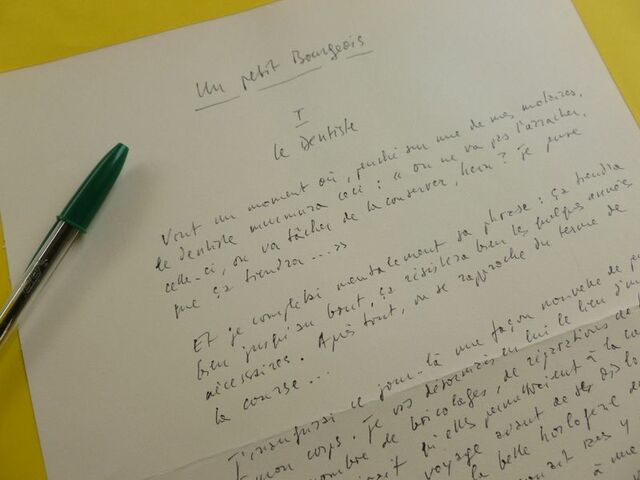 Un petit Bourgeois
I
Le Dentiste
Vint un moment où, penché sur une de mes molaires,
le dentiste murmura ceci : « on ne va pas l'arracher,
celle-ci, on va tâcher de la conserver, hein ? Je pense
que ça tiendra....»
Et je complétai mentalement sa phrase : ça tiendra
bien jusqu'au bout, ça résistera bien les quelques années
nécessaires. Après tout, on se rapproche du terme de
la course...
J'inaugurai ce jour-là une façon nouvelle de
mon corps. Je vis désormais en lui le lieu d'un
nombre de bricolages, de réparations de
qu'elles permettraient à la
voyage avant de
la belle horlogerie